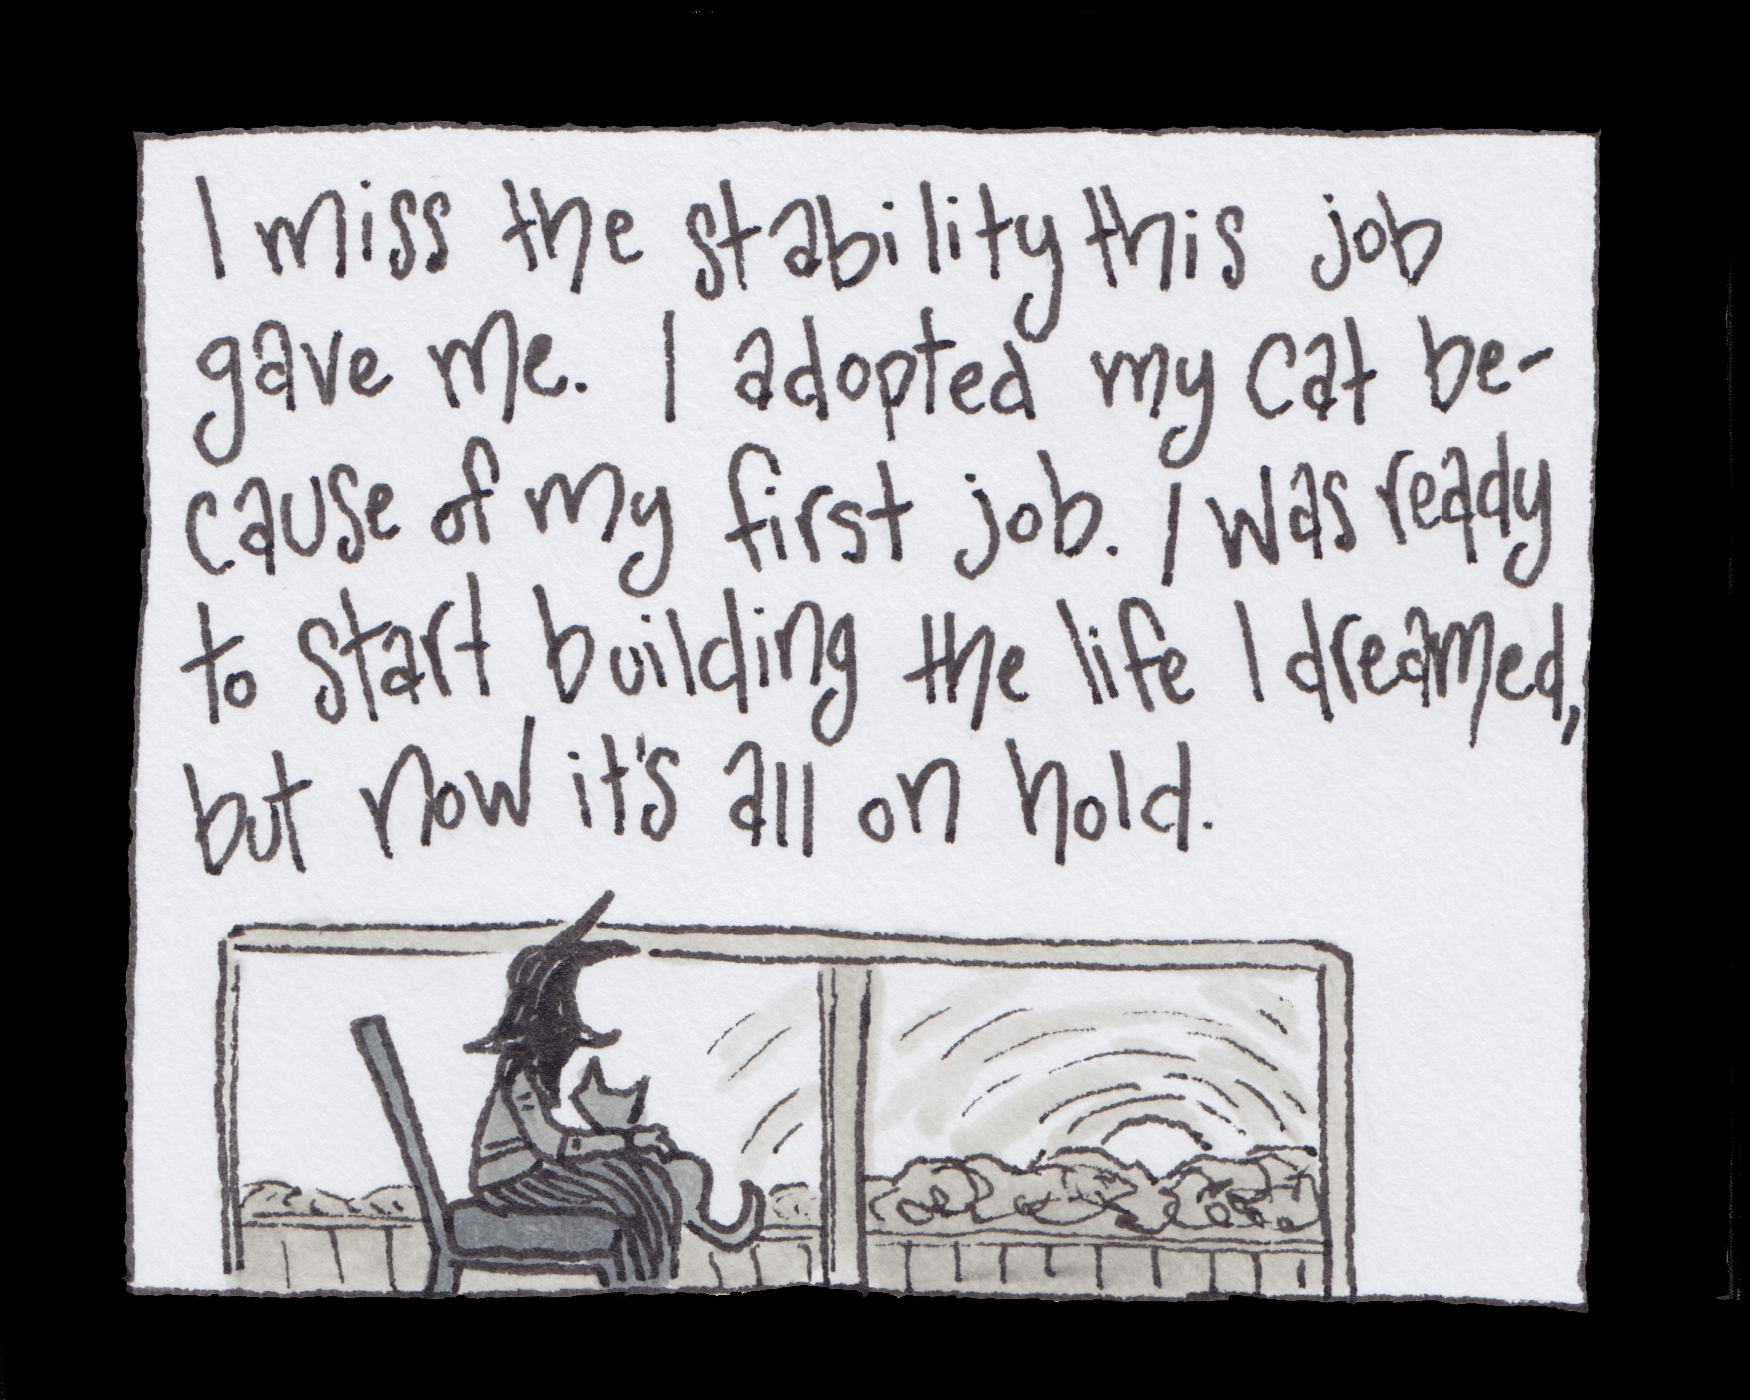 I miss the stability this job
gave me. I adopted my cat be-
cause of my first job. I was ready
to start building the life I dreamed,
but now it's all on hold.